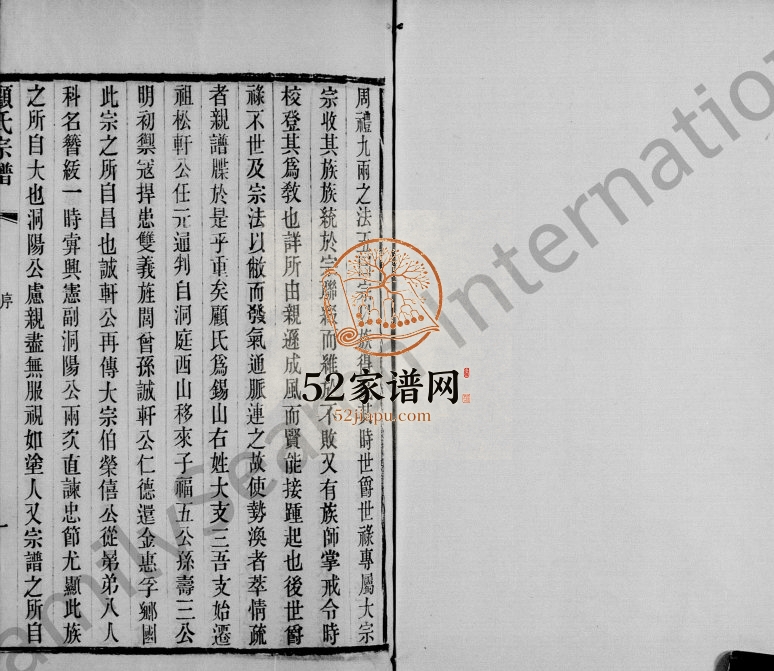 周禮九兩之法五曰宗 族得 其時世爵世祿專屬大宗
宗收其族族統於宗聯 而 不敗又有族師掌戒令時
校登其爲敎也詳所由親遜成風而賢能接踵起也後世爵
祿不世及宗法以敝而發氣通脈連之故使勢渙者萃情疏
者親譜牒於是乎重矣顧氏爲錫山右姓大支三吾支始遷
祖松軒公任元通判自洞庭西山移來子福五公孫壽三公
明初禦寇捍患雙義旌閭曾孫誠軒公仁德遣金惠孚鄉國
此宗之所自昌也誠軒公再傳大宗伯榮僖公從弟弟八人
科名簪紱一時霽興憲副洞陽公兩次直諫忠節尤顯此族
之所自大也洞陽公慮親盡無服視如塗人又宗譜之所自
顧氏宗譜
序
一
52家谱网
52jiapu.com
FamilySearch International